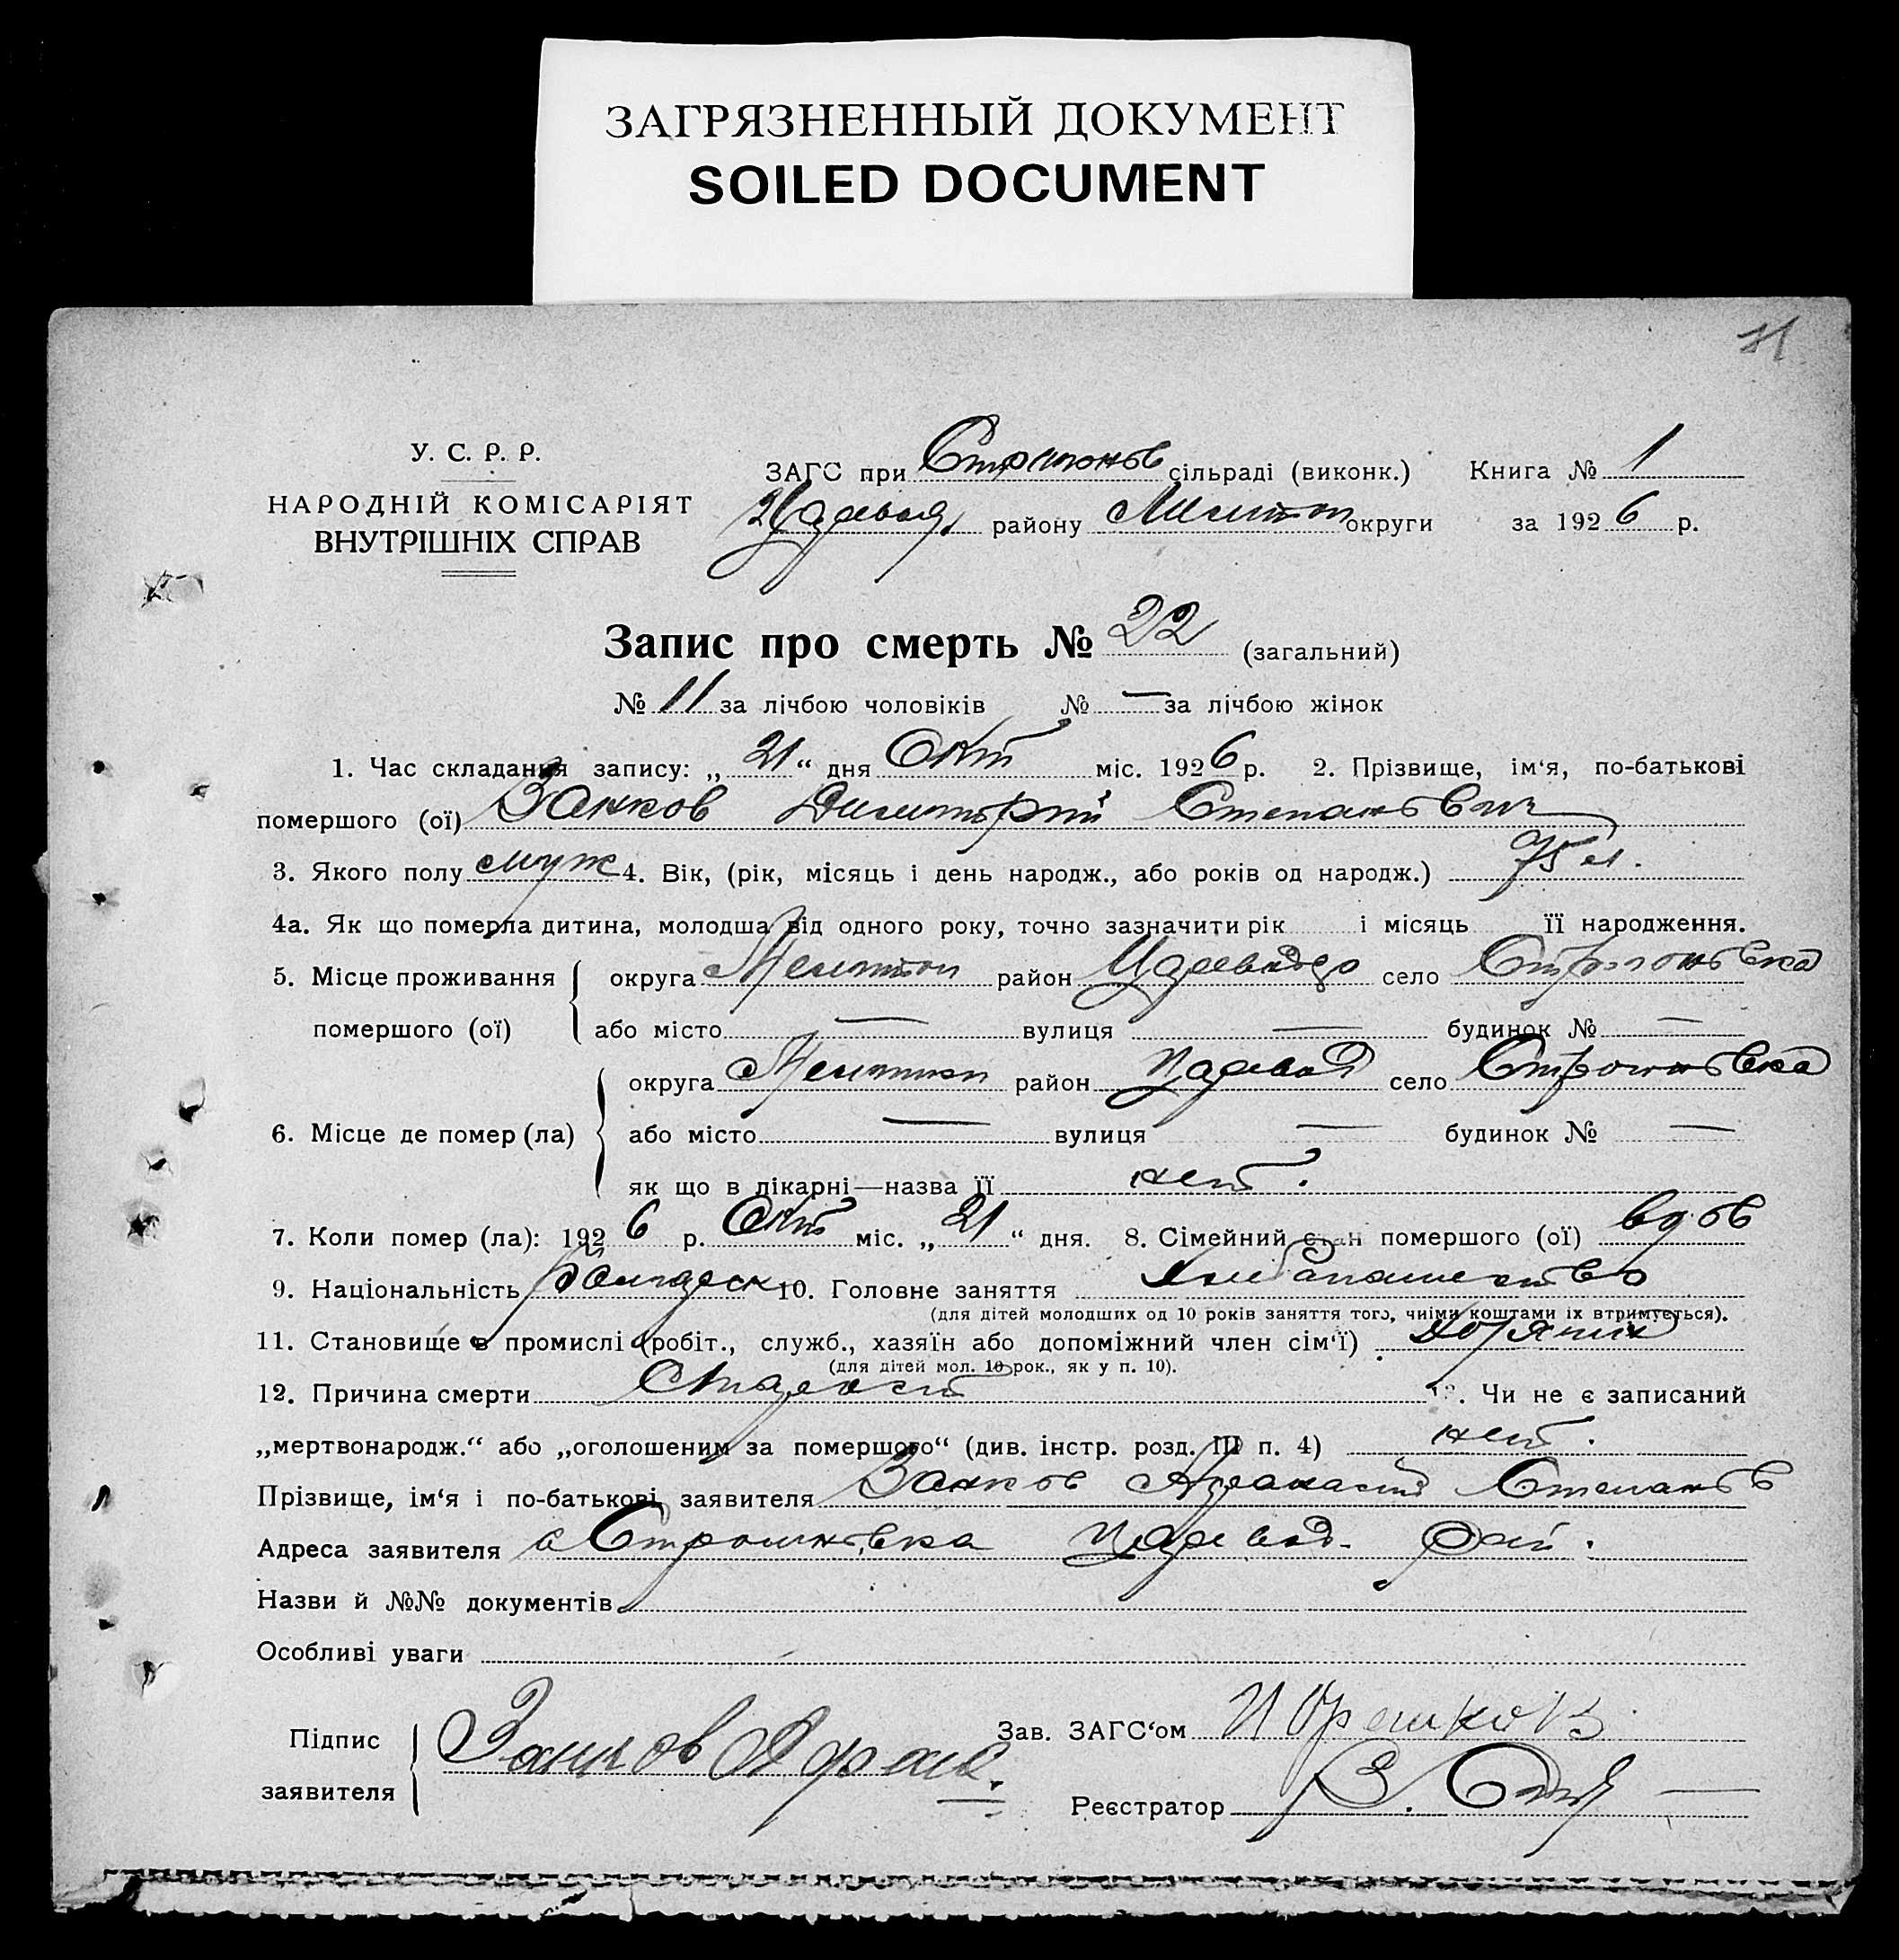 ЗАГРЯЗНЕННЫЙ ДОКУМЕНТ
SOILED DOCUMENT
У. С. Р. Р.
НАРОДНІЙ КОМІСАРІЯТ
ВНУТРІШНІХ СПРАВ
ЗАГС при сільраді (виконк.) Книга № 1
району округи за 1926 р.
Запис про смерть № 22 (загальний)
№ 11 за лічбою чоловіків № — за лічбою жінок
1. Час складання запису: „21“ дня Окт міс. 1926 р. 2. Прізвище, ім‘я, по-батькові
помершого (ої) Занков Димитрий
3. Якого полу муж 4. Вік, (рік, місяць і день народж., або років од народж.) 75 л.
4а. Як що померла дитина, молодша від одного року, точно зазначити рік і місяць її народження.
5. Місце проживання округа Мелитоп район село
помершого (ої) або місто — вулиця — будинок № —
округа район Царевод село
6. Місце де помер (ла) або місто — вулиця — будинок № —
як що в лікарні—назва її нет.
7. Коли помер (ла): 1926 р. Окт міс. „21“ дня. 8. Сімейний стан помершого (ої) вдов
9. Національність 10. Головне заняття
(для дітей молодших од 10 років заняття того, чиїми коштами їх втримується).
11. Становище в промислі (робіт., служб., хазяїн або допоміжний член сім‘ї)
(для дітей мол. 10 рок., як у п. 10).
12. Причина смерти Старост 13. Чи не є записаний
„мертвонародж.“ або „оголошеним за помершого“ (див. інстр. розд. III п. 4) нет.
Прізвище, ім‘я і по-батькові заявителя Занков Афанасий
Адреса заявителя с Царевод. рай.
Назви й №№ документів
Особливі уваги
Підпис
заявителя
Занков Афан.
Зав. ЗАГС‘ом
Реєстратор